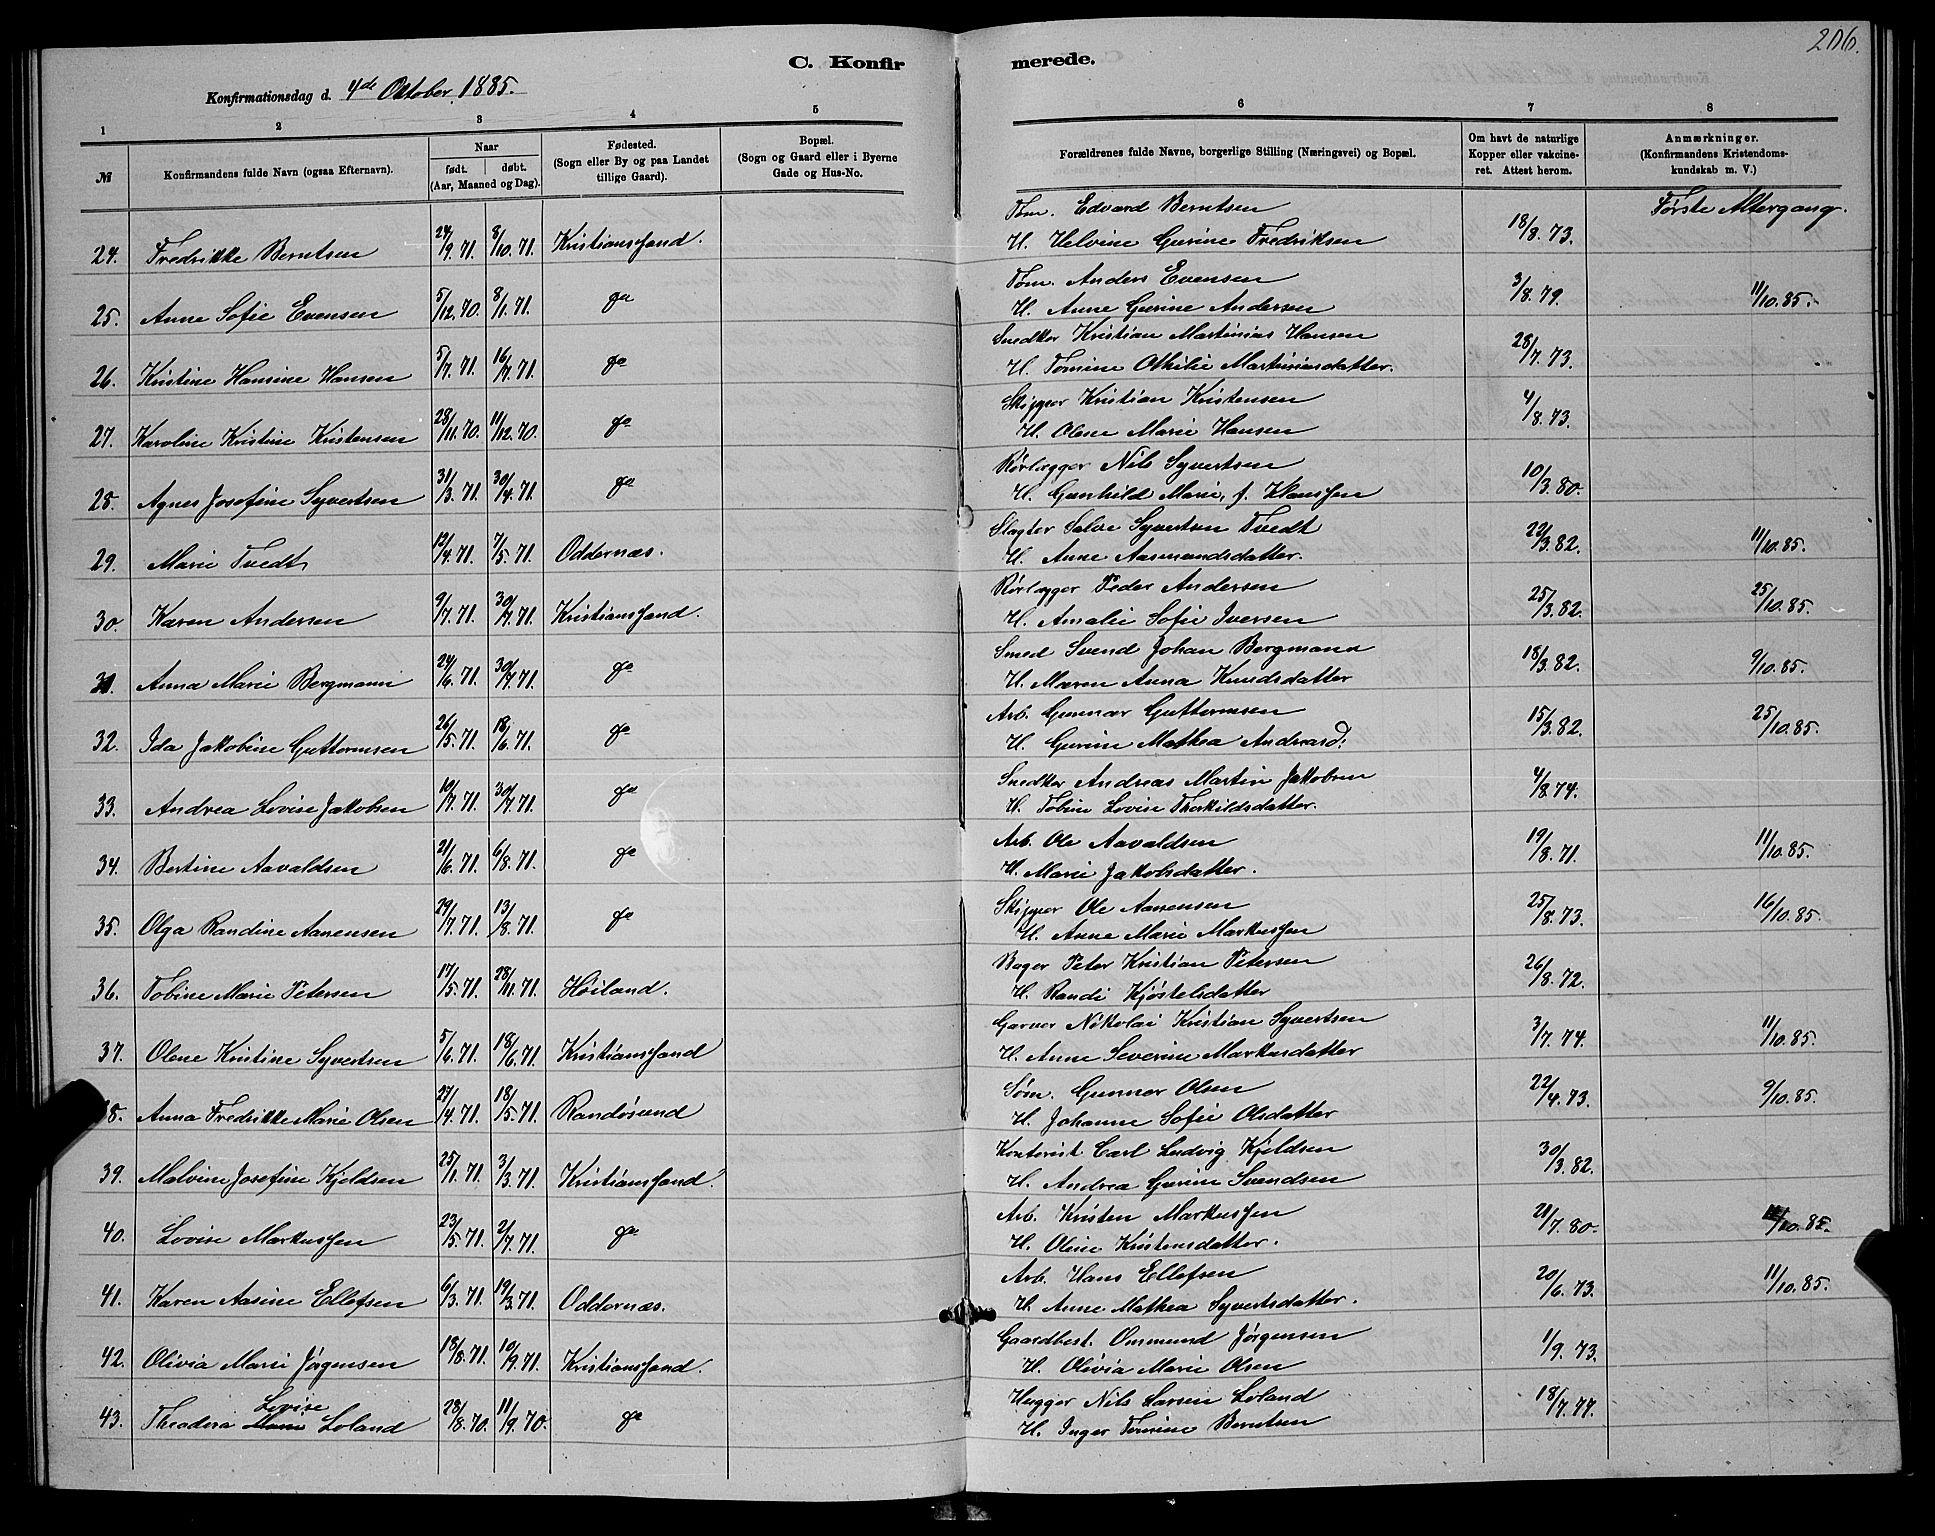 206.
C. Konfirmerede.
Konfirmationsdag d. 4de Oktober 1885.
1 2 3 4 5 6 7 8
№ Konfirmandens fulde Navn (ogsaa Efternavn). Naar født. døbt. (Aar, Maaned og Dag). Fødested. (Sogn eller By og paa Landet tillige Gaard). Bopæl. (Sogn og Gaard eller i Byerne Gade og Hus-No. Forældrenes fulde Navne, borgerlige Stilling (Næringsvei) og Bopæl. Om havt de naturlige Kopper eller vakcineret. Attest herom. Anmærkninger. (Konfirmandens Kristendomskundskab m. V.)
Første Altergang.
24. Fredrikke Berntsen 24/9.71. 8/10.71. Kristianssand. Tøm. Edvard Berntsen
H. Helvine Gurine Fredriksen 18/8.73.
25. Anne Sofie Evensen 5/12.70. 8/1.71. do Tøm. Anders Evensen
H. Anne Gurine Andersen 3/8.79. 11/10.85.
26. Kristine Hansine Hansen 5/7.71. 16/7.71. do Snedker Kristian Martinius Hansen
H. Tomine Othilie Martiniusdatter. 28/7.73.
27. Karoline Kristine Kristensen 28/11.70. 11/12.70. do Skipper Kristian Kristensen
H. Olene Marie Hansen 4/8.73.
28. Agnes Josefine Syvertsen 31/3.71. 30/4.71. do Rørlægger Nils Syvertsen
H. Gunhild Marie, f. Klaussen 10/3.80.
29. Marie Tvedt 12/4.71. 7/5.71. Oddernæs. Slagter Salve Syvertsen Tvedt
H. Anne Aasmundsdatter. 22/3.82. 11/10.85.
30. Karen Andersen 9/7.71. 30/7.71. Kristianssand. Rørlægger Peder Andersen
H. Amalie Sofie Iversen 25/3.82. 25/10.85.
31. Anna Marie Bergmann 24/6.71. 30/7.71. do Smed Svend Johan Bergmann
H. Maren Anna Knudsdatter 18/3.82. 9/10.85.
32. Ida Jakobine Guttormsen 26/5.71. 18/6.71. do Arb. Gunnar Guttormsen
H. Gurine Mathea Andreasd. 15/3.82. 25/10.85.
33. Andrea Lovise Jakobsen 10/7.71. 30/7.71. do Snedker Andreas Martin Jakobsen
H. Tobine Lovise Thorkildsdatter. 4/8.74.
34. Bertine Aavaldsen 21/6.71. 6/8.71. do Arb. Ole Aavaldsen
H. Marie Jakobsdatter. 19/8.71. 11/10.85.
35. Olga Randine Aanensen 29/7.71. 13/8.71. do Skipper Ole Aanensen
H. Anne Marie Markussen 25/8.73. 16/10.85.
36. Tobine Marie Petersen 17/5.71. 28/11.71. Høiland. Bager Peter Kristian Petersen
H. Randi Kjøstelsdatter 26/8.72.
37. Olene Kristine Syvertsen 5/6.71. 18/6.71. Kristianssand Garver Nikolai Kristian Syvertsen
H. Anne Severine Markusdatter 3/7.74. 11/10.85.
38. Anna Fredrikke Marie Olsen 27/4.71. 18/5.71. Randøsund Søm. Gunnar Olsen
H. Johanne Sofie Olsdatter 22/4.73. 9/10.85.
39. Malvine Josefine Kjeldsen 25/1.71. 3/3.71. Kristianssand. Kontorist Carl Ludvig Kjeldsen
H. Andrea Gurine Svendsen 30/3.82.
40. Lovise Markussen 23/5.71. 2/7.71. do Arb. Kristen Markussen
H. Oline Kristensdatter. 21/7.80. /10.85.
41. Karen Aasine Ellefsen 6/3.71. 19/3.71. Oddernæs. Arb. Hans Ellefsen
H. Anne Mathea Syvertsdatter. 20/6.73. 11/10.85.
42. Olivia Marie Jørgensen 18/8.71. 10/9.71. Kristianssand. Gaardbest. Ommund Jørgensen
H. Olivia Marie Olsen 1/9.73.
43. Theodora Marie Lovise Loland 28/8.70. 11/9.70. do Nils Larsen Loland
H. Inger Tomine Berntsen 18/7.77.